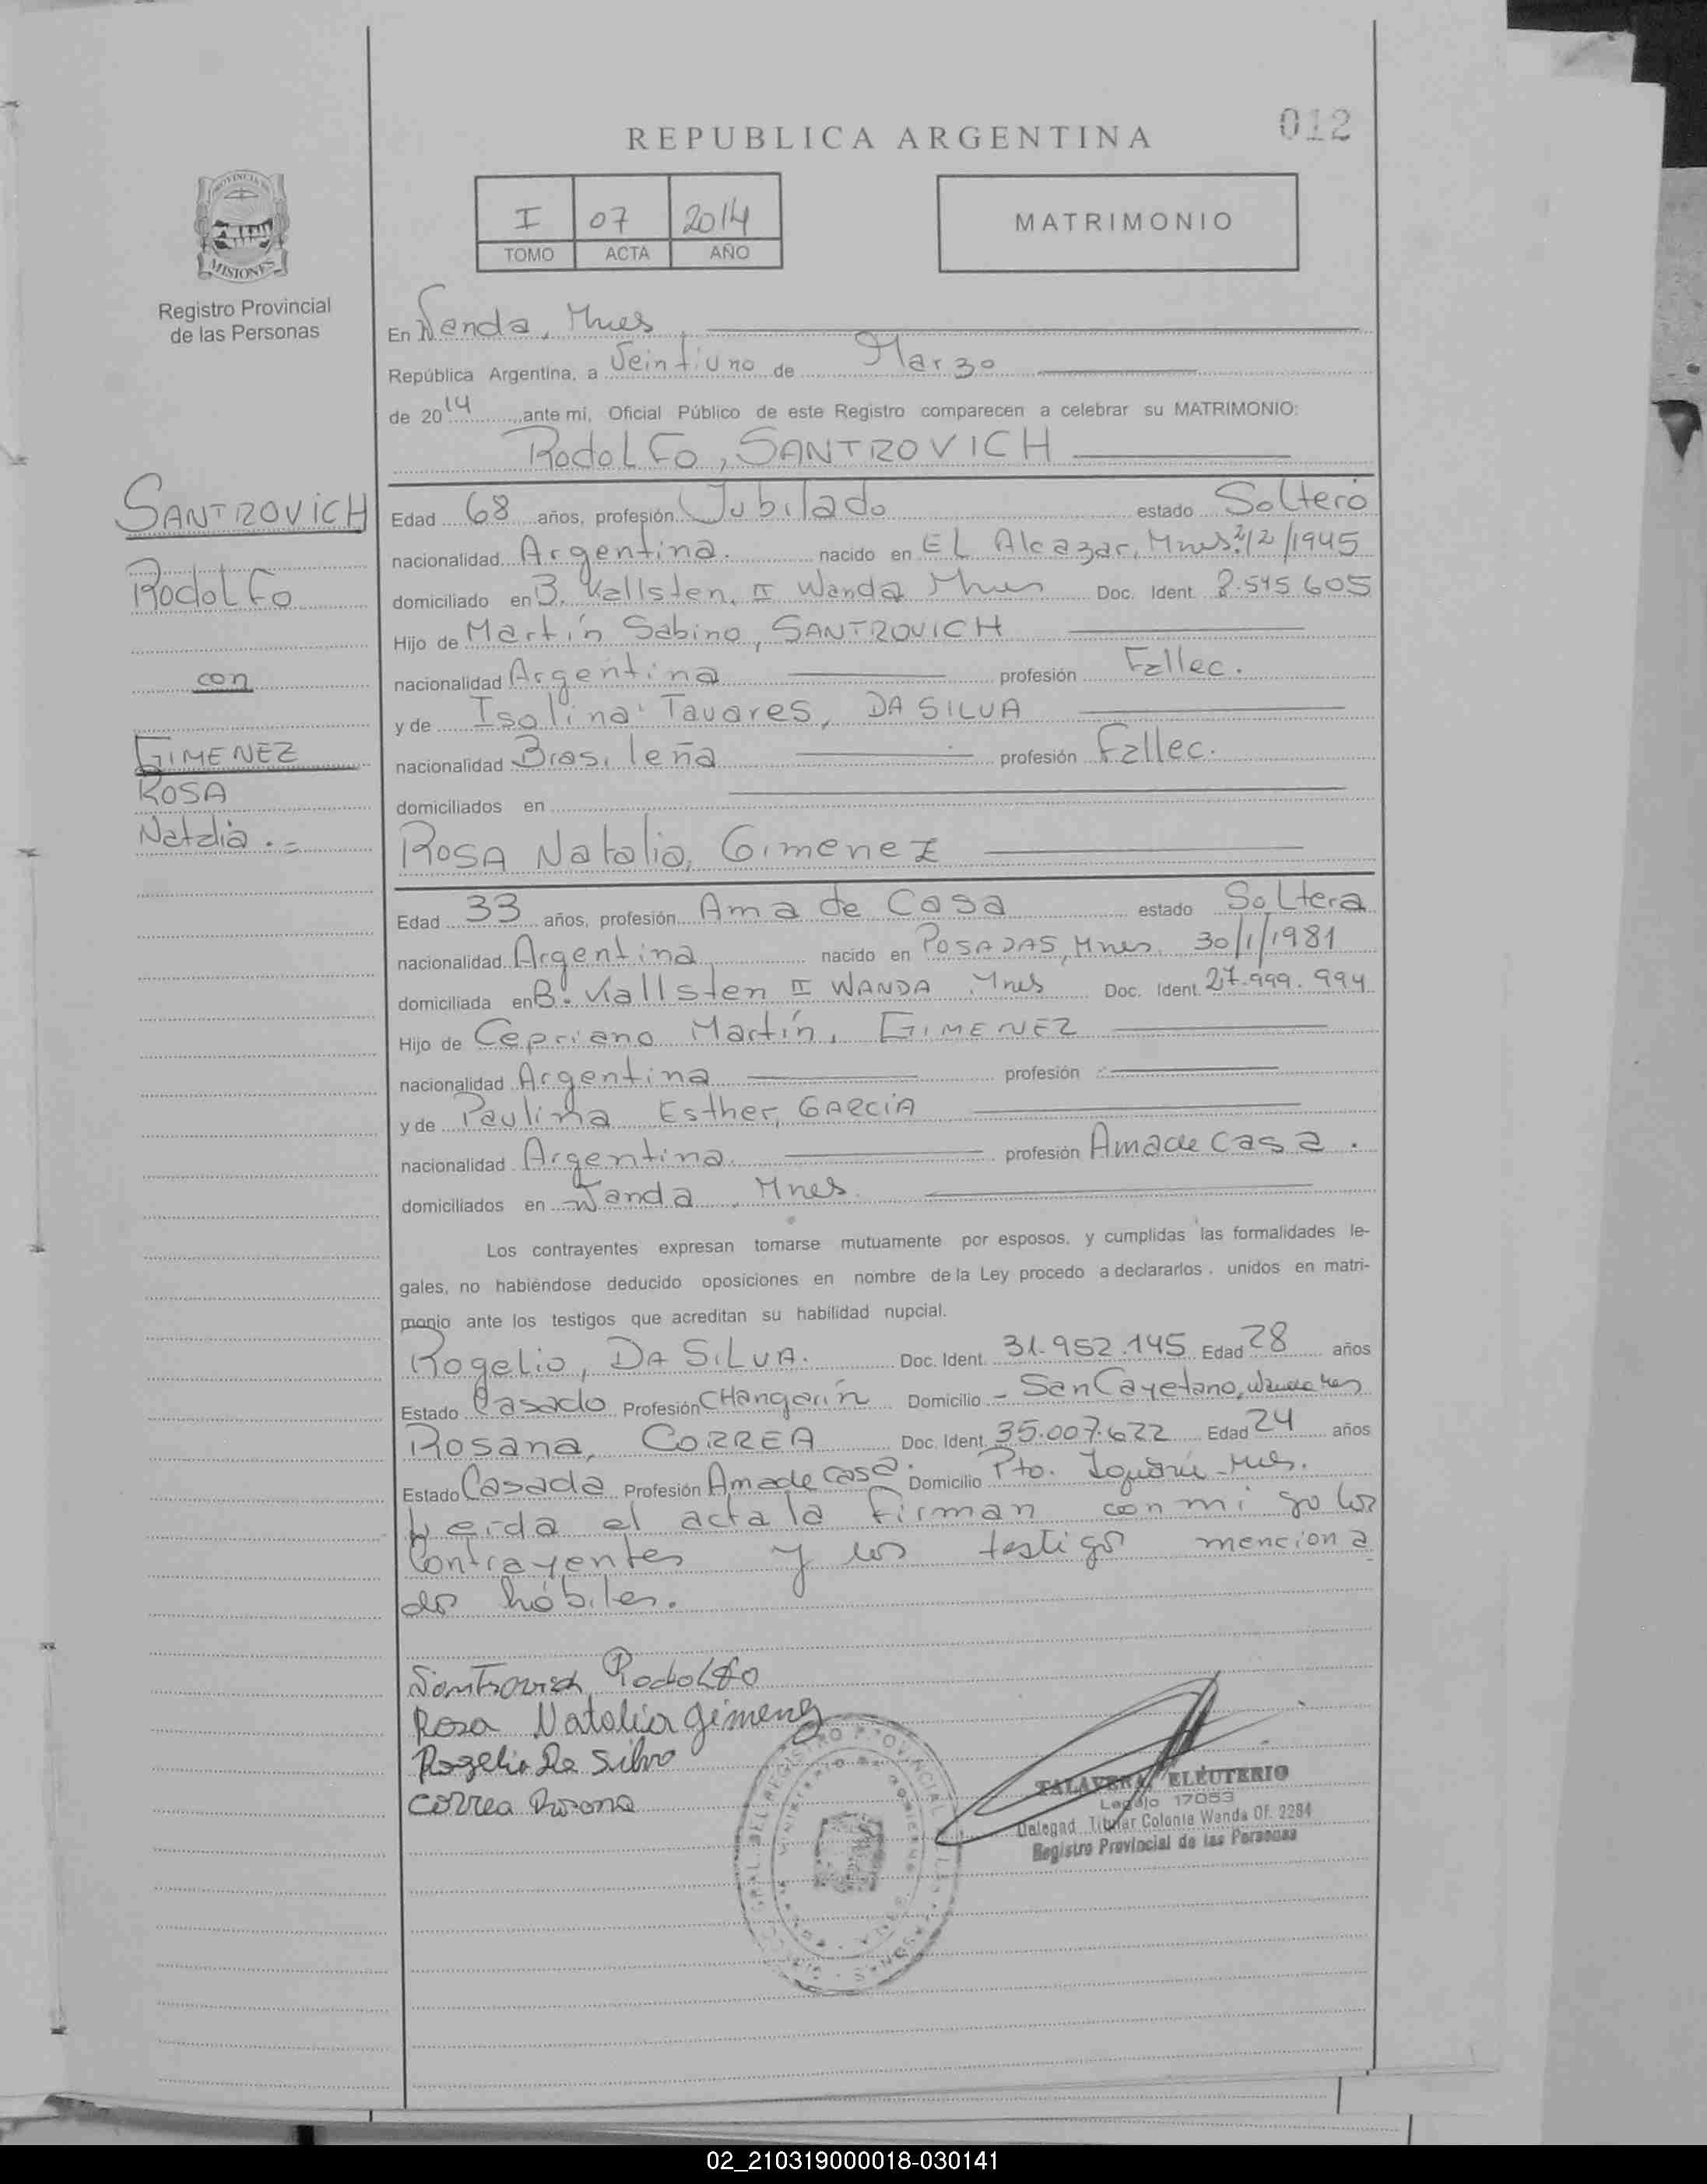 012
REPUBLICA ARGENTINA
I 07 2014
TOMO ACTA AÑO
MATRIMONIO
PROVINCIA DE
MISIONES
Registro Provincial
de las Personas
En Wanda, Mnes
República Argentina, a Veintiuno de Marzo
de 2014, ante mi, Oficial Público de este Registro comparecen a celebrar su MATRIMONIO:
RodoLFo, SANTROVICH
SANTROVICH
RodoLFo
con
GIMENEZ
ROSA
Natalia .=
Edad 68 años, profesión Jubilado estado Soltero
nacionalidad Argentina. nacido en EL Alcazar, Mnes. 2/2/1945
domiciliado en B. Vallsten, II Wanda Mnes Doc. Ident. 8.545.605
Hijo de Martín Sabino, SANTROVICH
nacionalidad Argentina profesión Fallec.
y de Isolina Tavares, DA SILVA
nacionalidad Brasileña profesión Fallec.
domiciliados en
ROSA Natalia, GimeneZ
Edad 33 años, profesión Ama de Casa estado Soltera
nacionalidad Argentina nacido en POSADAS, Mnes. 30/1/1981
domiciliada en B. Vallsten II WANDA Mnes Doc. Ident. 27.999.994
Hijo de Cepriano Martín, GIMENEZ
nacionalidad Argentina profesión
y de Paulina Esther, GARCIA
nacionalidad Argentina. profesión Ama de casa.
domiciliados en Wanda, Mnes.
Los contrayentes expresan tomarse mutuamente por esposos, y cumplidas las formalidades le-
gales, no habiéndose deducido oposiciones en nombre de la Ley procedo a declararlos, unidos en matri-
monio ante los testigos que acreditan su habilidad nupcial.
Rogelio, DA SILVA. Doc. Ident. 31.952.145 Edad 28 años
Estado Casado Profesión CHangarín Domicilio - San Cayetano, Wanda Mnes
Rosana, CORREA Doc. Ident. 35.007.622 Edad 24 años
Estado Casada Profesión Ama de casa. Domicilio Pto. Iguazú - Mnes.
Leida el acta la firman conmigo los
Contrayentes y los testigos menciona
dos hábiles.
Santrovich RodoLfo
Rosa Natalia gimenez
Rogelio Da Silva
correa Rosana
TALAVERA, ELEUTERIO
Legajo 17053
Delegad. Titular Colonia Wanda Of. 2284
Registro Provincial de las Personas
02_210319000018-030141